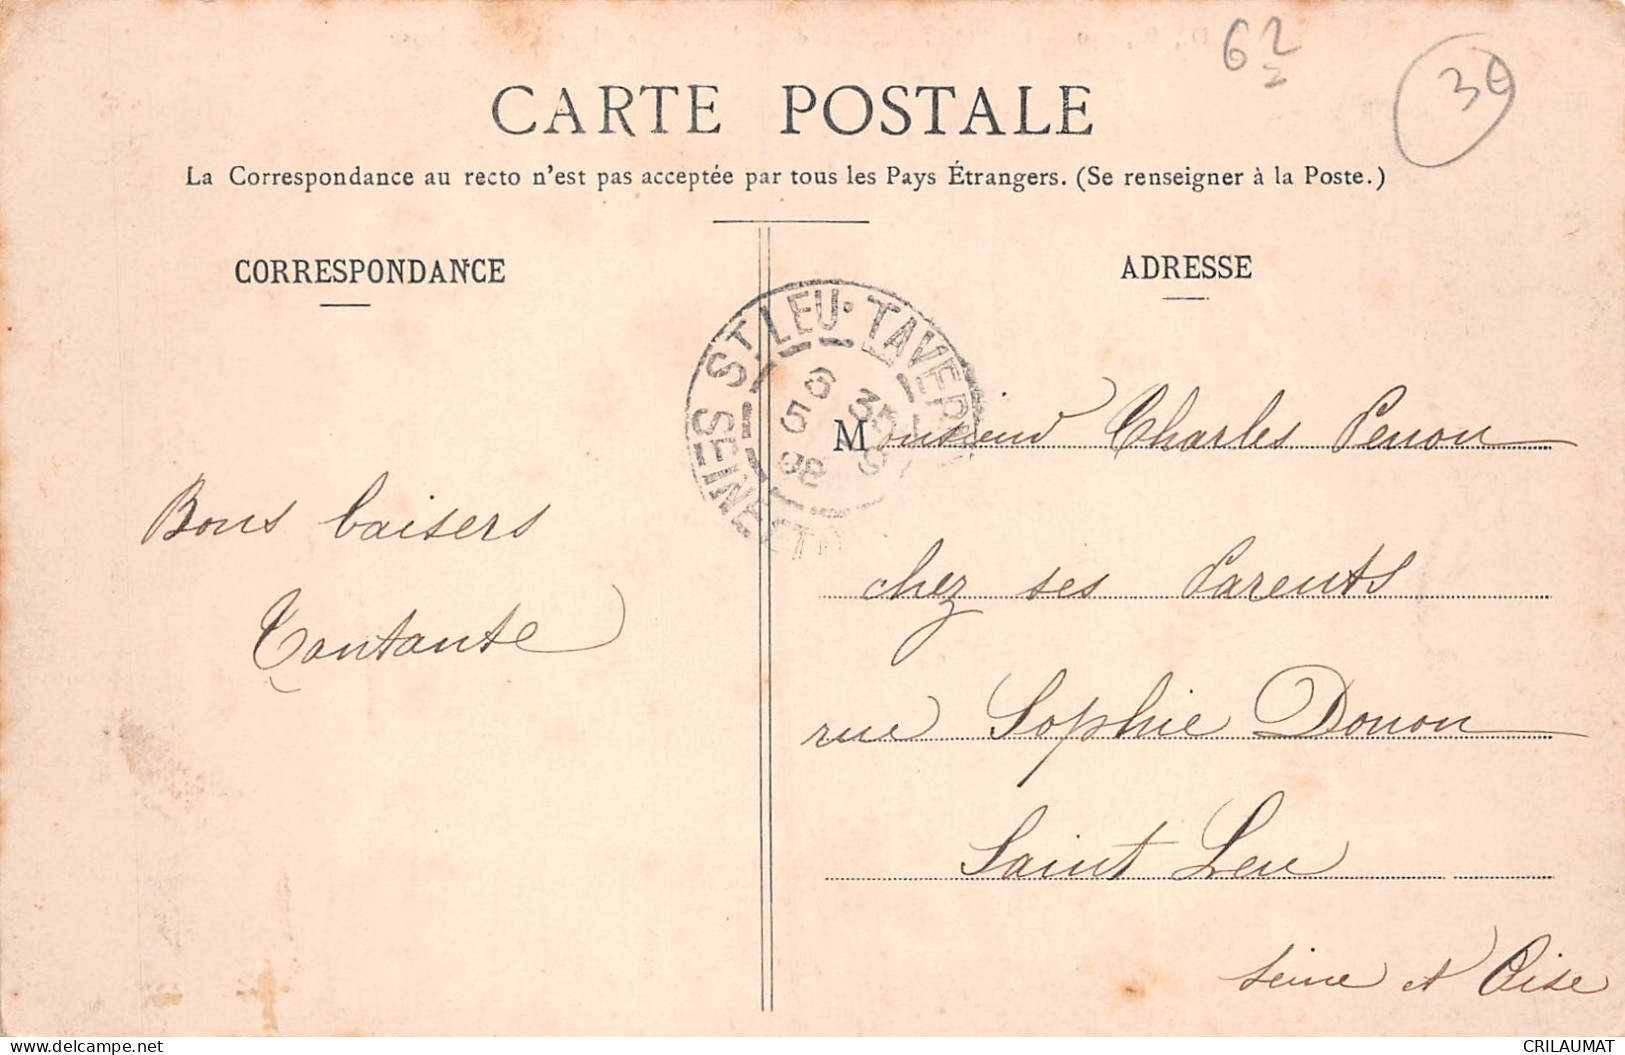 62
30
CARTE POSTALE
La Correspondance au recto n'est pas acceptée par tous les Pays Étrangers. (Se renseigner à la Poste.)
CORRESPONDANCE
ADRESSE
ST. LEU-TAVERNY
SEINE-ET-
6 35
5
08
Bons baisers
Tantante
Monsieur Charles Penon
chez ses Parents
rue Sophie Donon
Saint Leu
Seine et Oise
delcampe.net
CRILAUMAT